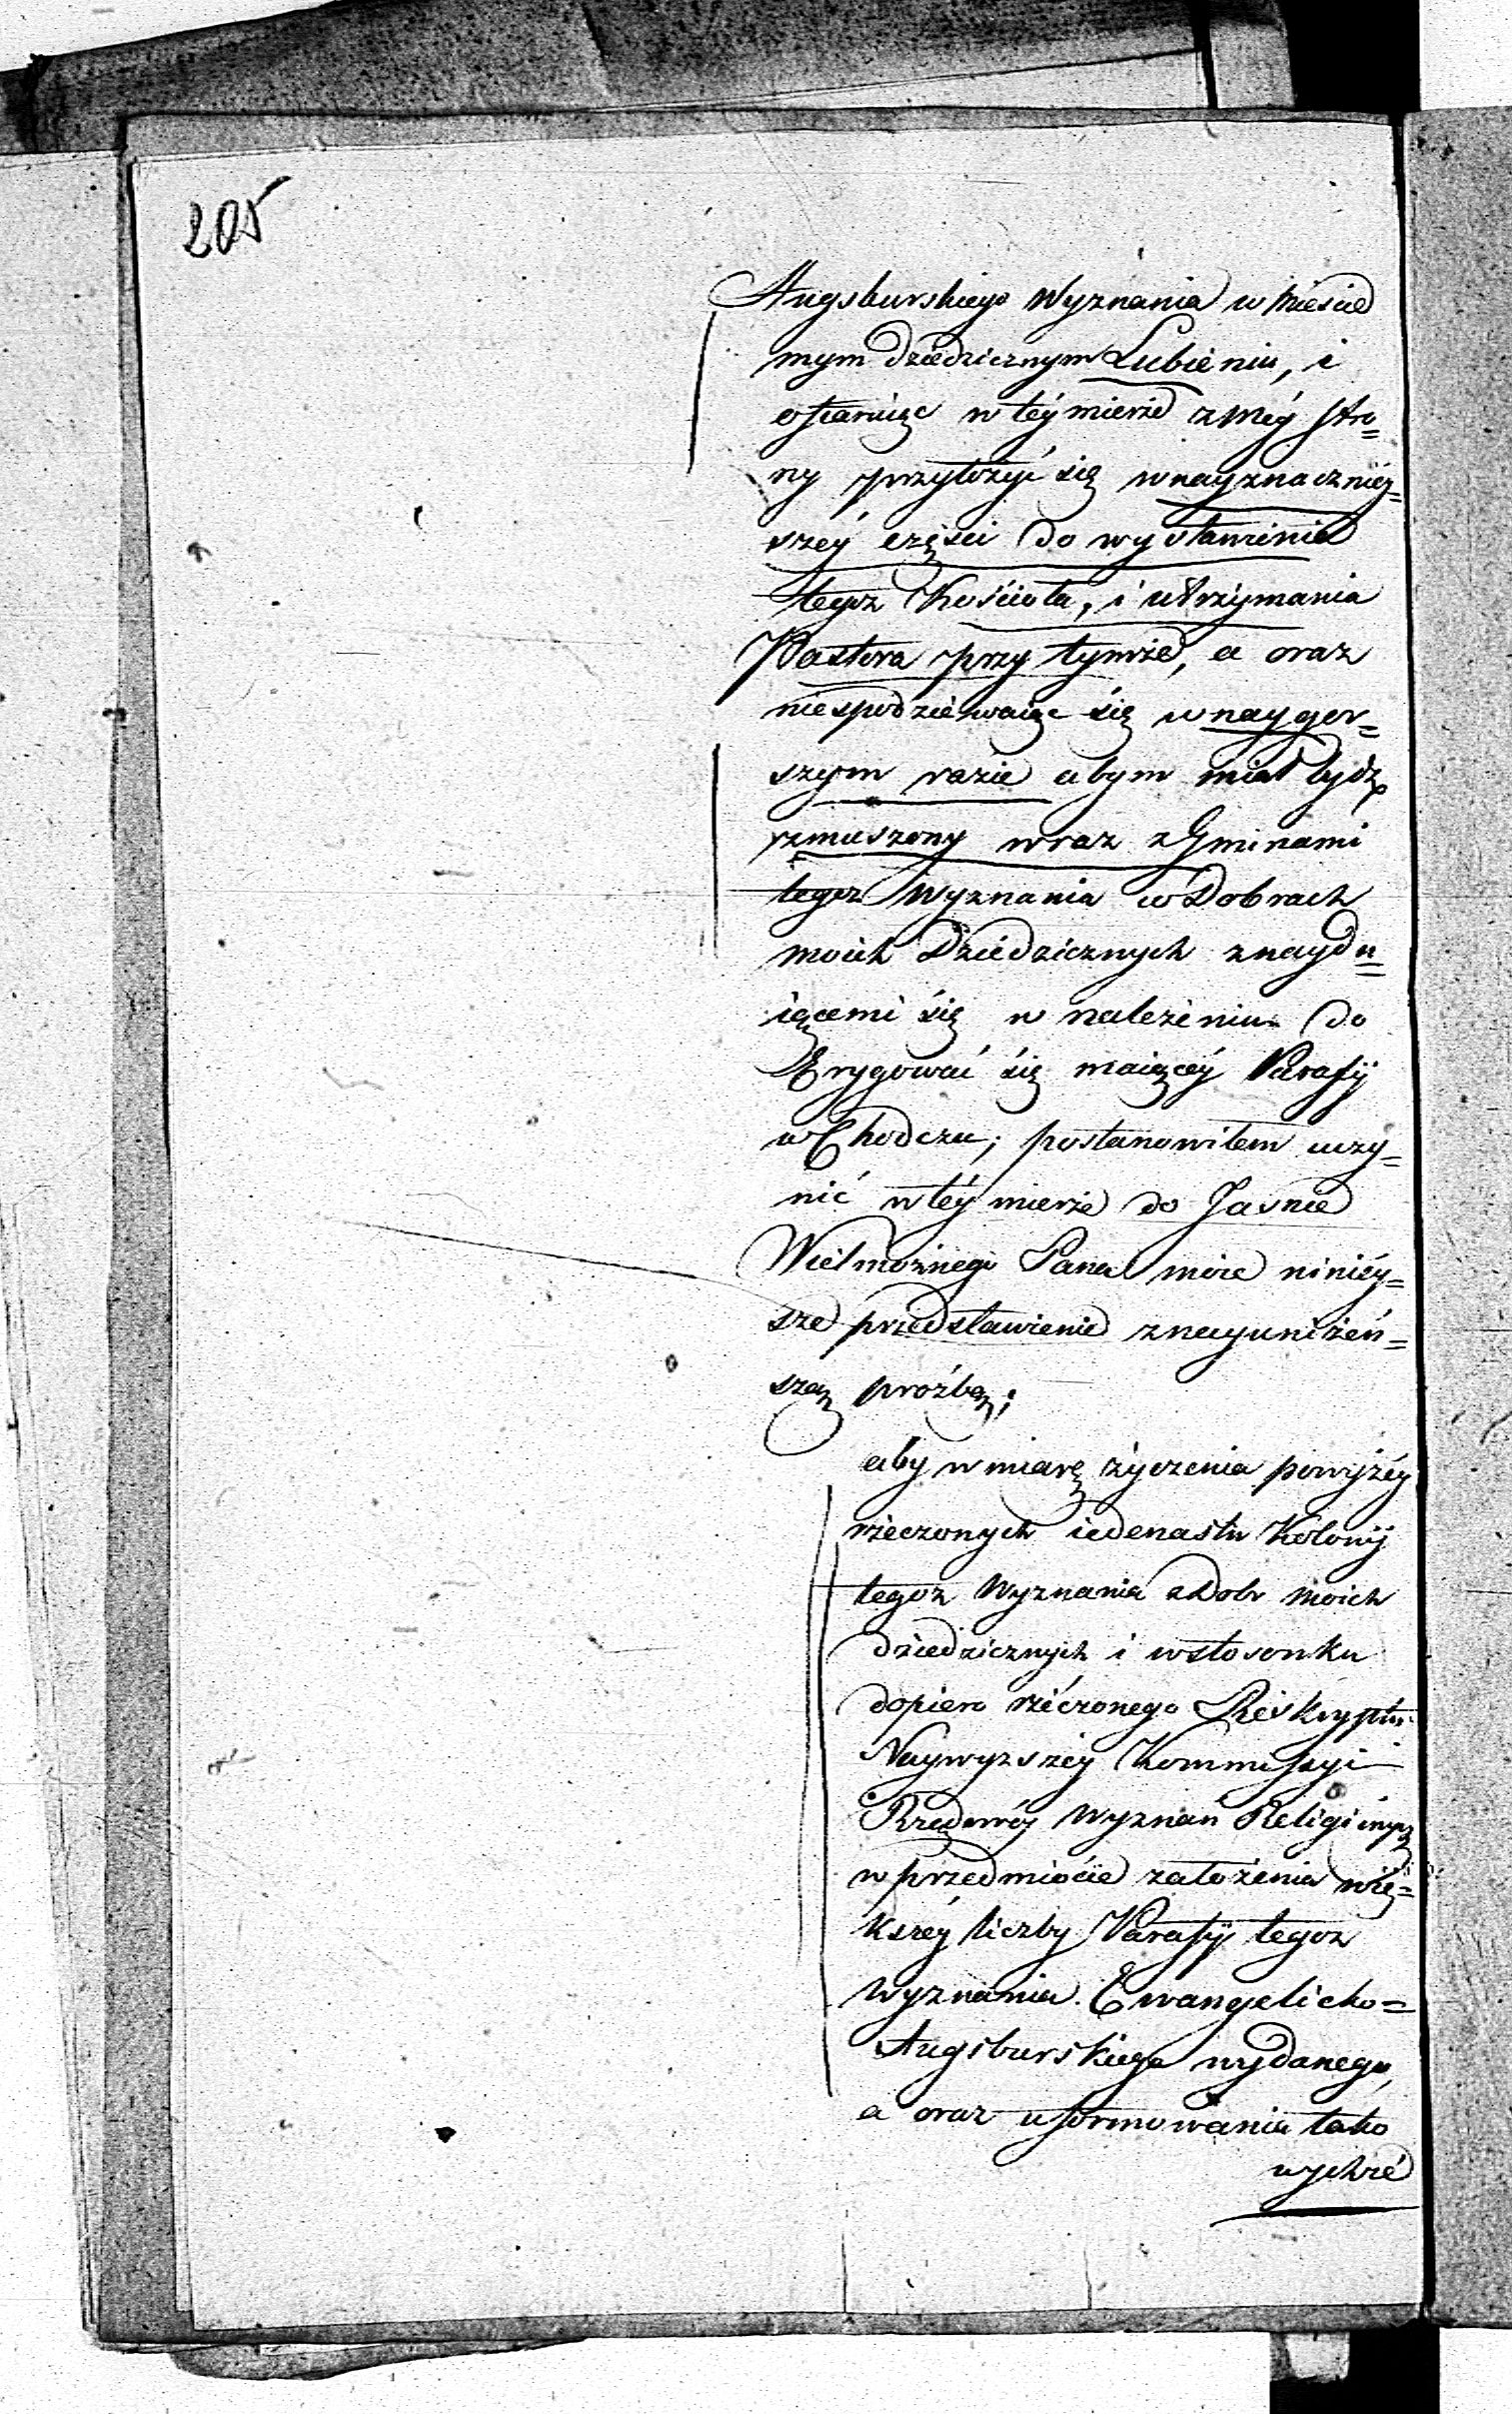 205
Augsburskiego Wyznania w Mieście
mym dziedzicznym Lubieniu, i
ofiarując w téy mierze z méy stro=
ny przyłożyć się w nayznaczniéy=
széy części do wystawienia
tegoz Kościoła, i utrzymania
Pastora przy tymże, a oraz
niespodziewaiąc się w naygor=
szym razie abym miał bydź
zmuszony wraz z Gminami
tegoz Wyznania w Dobrach
moich Dziedzicznych znaydu=
iącemi się w należeniu do
Erygować się maiącéy Parafij
w Chodczu; postanowiłem uczy=
nić w téy mierze do Jasnie
Wielmożnego Pana moie niniéy=
sze przedstawienie z nayuniżeń=
szą proźbą;
aby w miarę życzenia powyżéy
rzeczonych iedenastu Kolonij
tegoz Wyznania z Dobr moich
dziedzicznych i w stosonku
dopiero rzéczonego Reskryptu
Naywyzszéy Kommissyi
Rządowéy Wyznań Religiinych
w przedmiocie założenia wię=
kszéy liczby Parafij tegoz
Wyznania Ewangelicko=
Augsburskiego wydanego,
a oraz uformowania tako
wychże